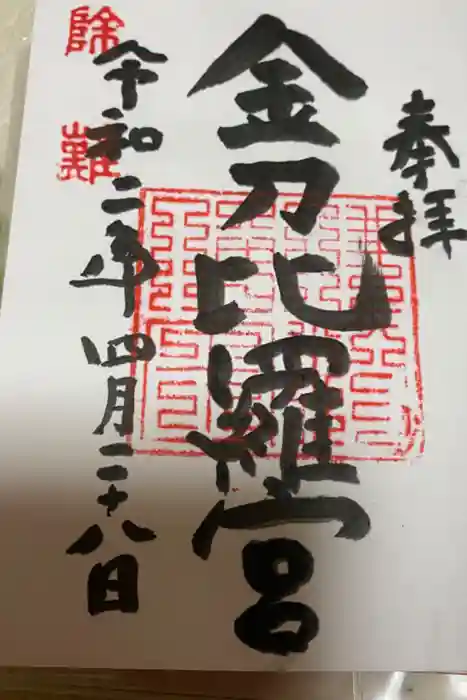 奉拝
金刀比羅宮
令和二年四月二十八日
除難